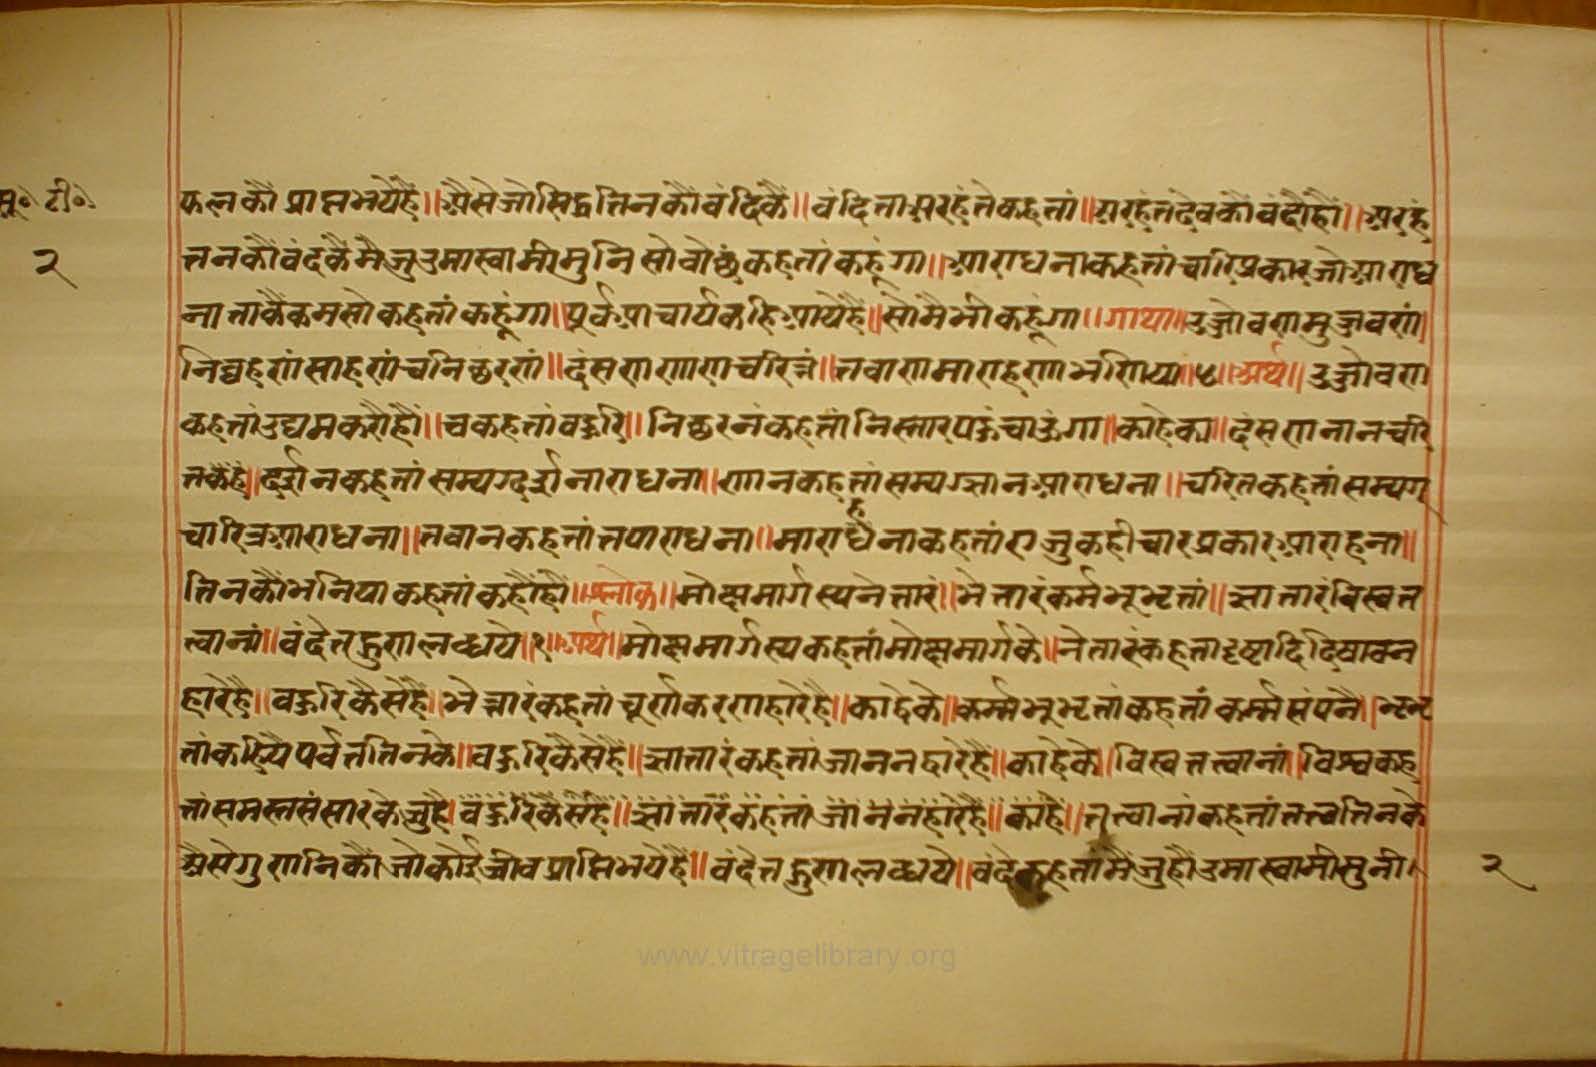 सू॰ टी॰
२
फलकौं प्राप्त भयेहैं॥ अैसे जो सिद्ध तिनकौं वंदिकैं॥ वंदित्ता अरहंते कहतां॥ अरहंत देवकौं वंदौंहौं॥ अरहं
तनकौं वंदकैं मै जु उमास्वामी मुनि सो वोछं कहतां कहूंगा॥ आराधना कहतां च्यारि प्रकार जो आराध
ना ताकैं क्रमसो कहतां कहूंगा॥ पूर्व आचार्य कहि आये हैं॥ सो मै भी कहूंगा॥ गाथा॥ उज्जोवण मुज्जवणं॥
निव्वहणं साहणं च निच्छरणं॥ दंसण णाण चरित्तं॥ तवाणमाराहणा भणिया॥ अर्थ॥ उज्जोवण
कहतां उद्यम करौहौं॥ च कहतां वहुरि॥ निछरनं कहतां निस्तार पहुंचाऊंगा॥ काहेका॥ दंसण नान चरि
तकेहैं॥ दर्शन कहतां सम्यग्दर्शनाराधना॥ णान कहतां सम्यग्ज्ञान आराधना॥ चरित कहतां सम्यग्
चारित्र आराधना॥ तवान कहतां तपाराधना॥ माराहना कहतां ए जु कही चार प्रकार आराहना॥
तिनकौं भनिया कहतां कहौंहौं॥ श्लोक॥ मोक्षमार्गस्य नेत्तारं॥ भेत्तारं कर्मभूभृतां॥ ज्ञातारं विस्वत
त्वानां॥ वंदे तद्गुणलब्धये॥१॥ अर्थ॥ मोक्षमार्गस्य कहतां मोक्षमार्गके॥ नेतारं कहता
हारेहै॥ वहुरि कैसेहैं॥ भेत्तारं कहतां चूर्ण करणहारेहै॥ काहेके॥ कर्म्मभूभृतां कहतां कर्म्म
तां कहिये पर्वत तिनके॥ वहुरि कैसेहैं॥ ज्ञातारं कहतां जाननहारेहैं॥ काहेके॥ विस्वतत्त्वानां॥ विश्व कह
तां समस्त संसारके जुहै। वहुरि कैसेहैं॥ ज्ञातारं कहतां जाननहारेहैं॥ काहै॥ तत्त्वानां कहतां तत्त्व तिनके
अैसे गुणनिकौं जो कोई जीव प्राप्ति भयेहैं॥ वंदे तद्गुणलब्धये॥ वंदे कहतां मैं जुहौं उमास्वामी मुनी।
२
www.vitragelibrary.org